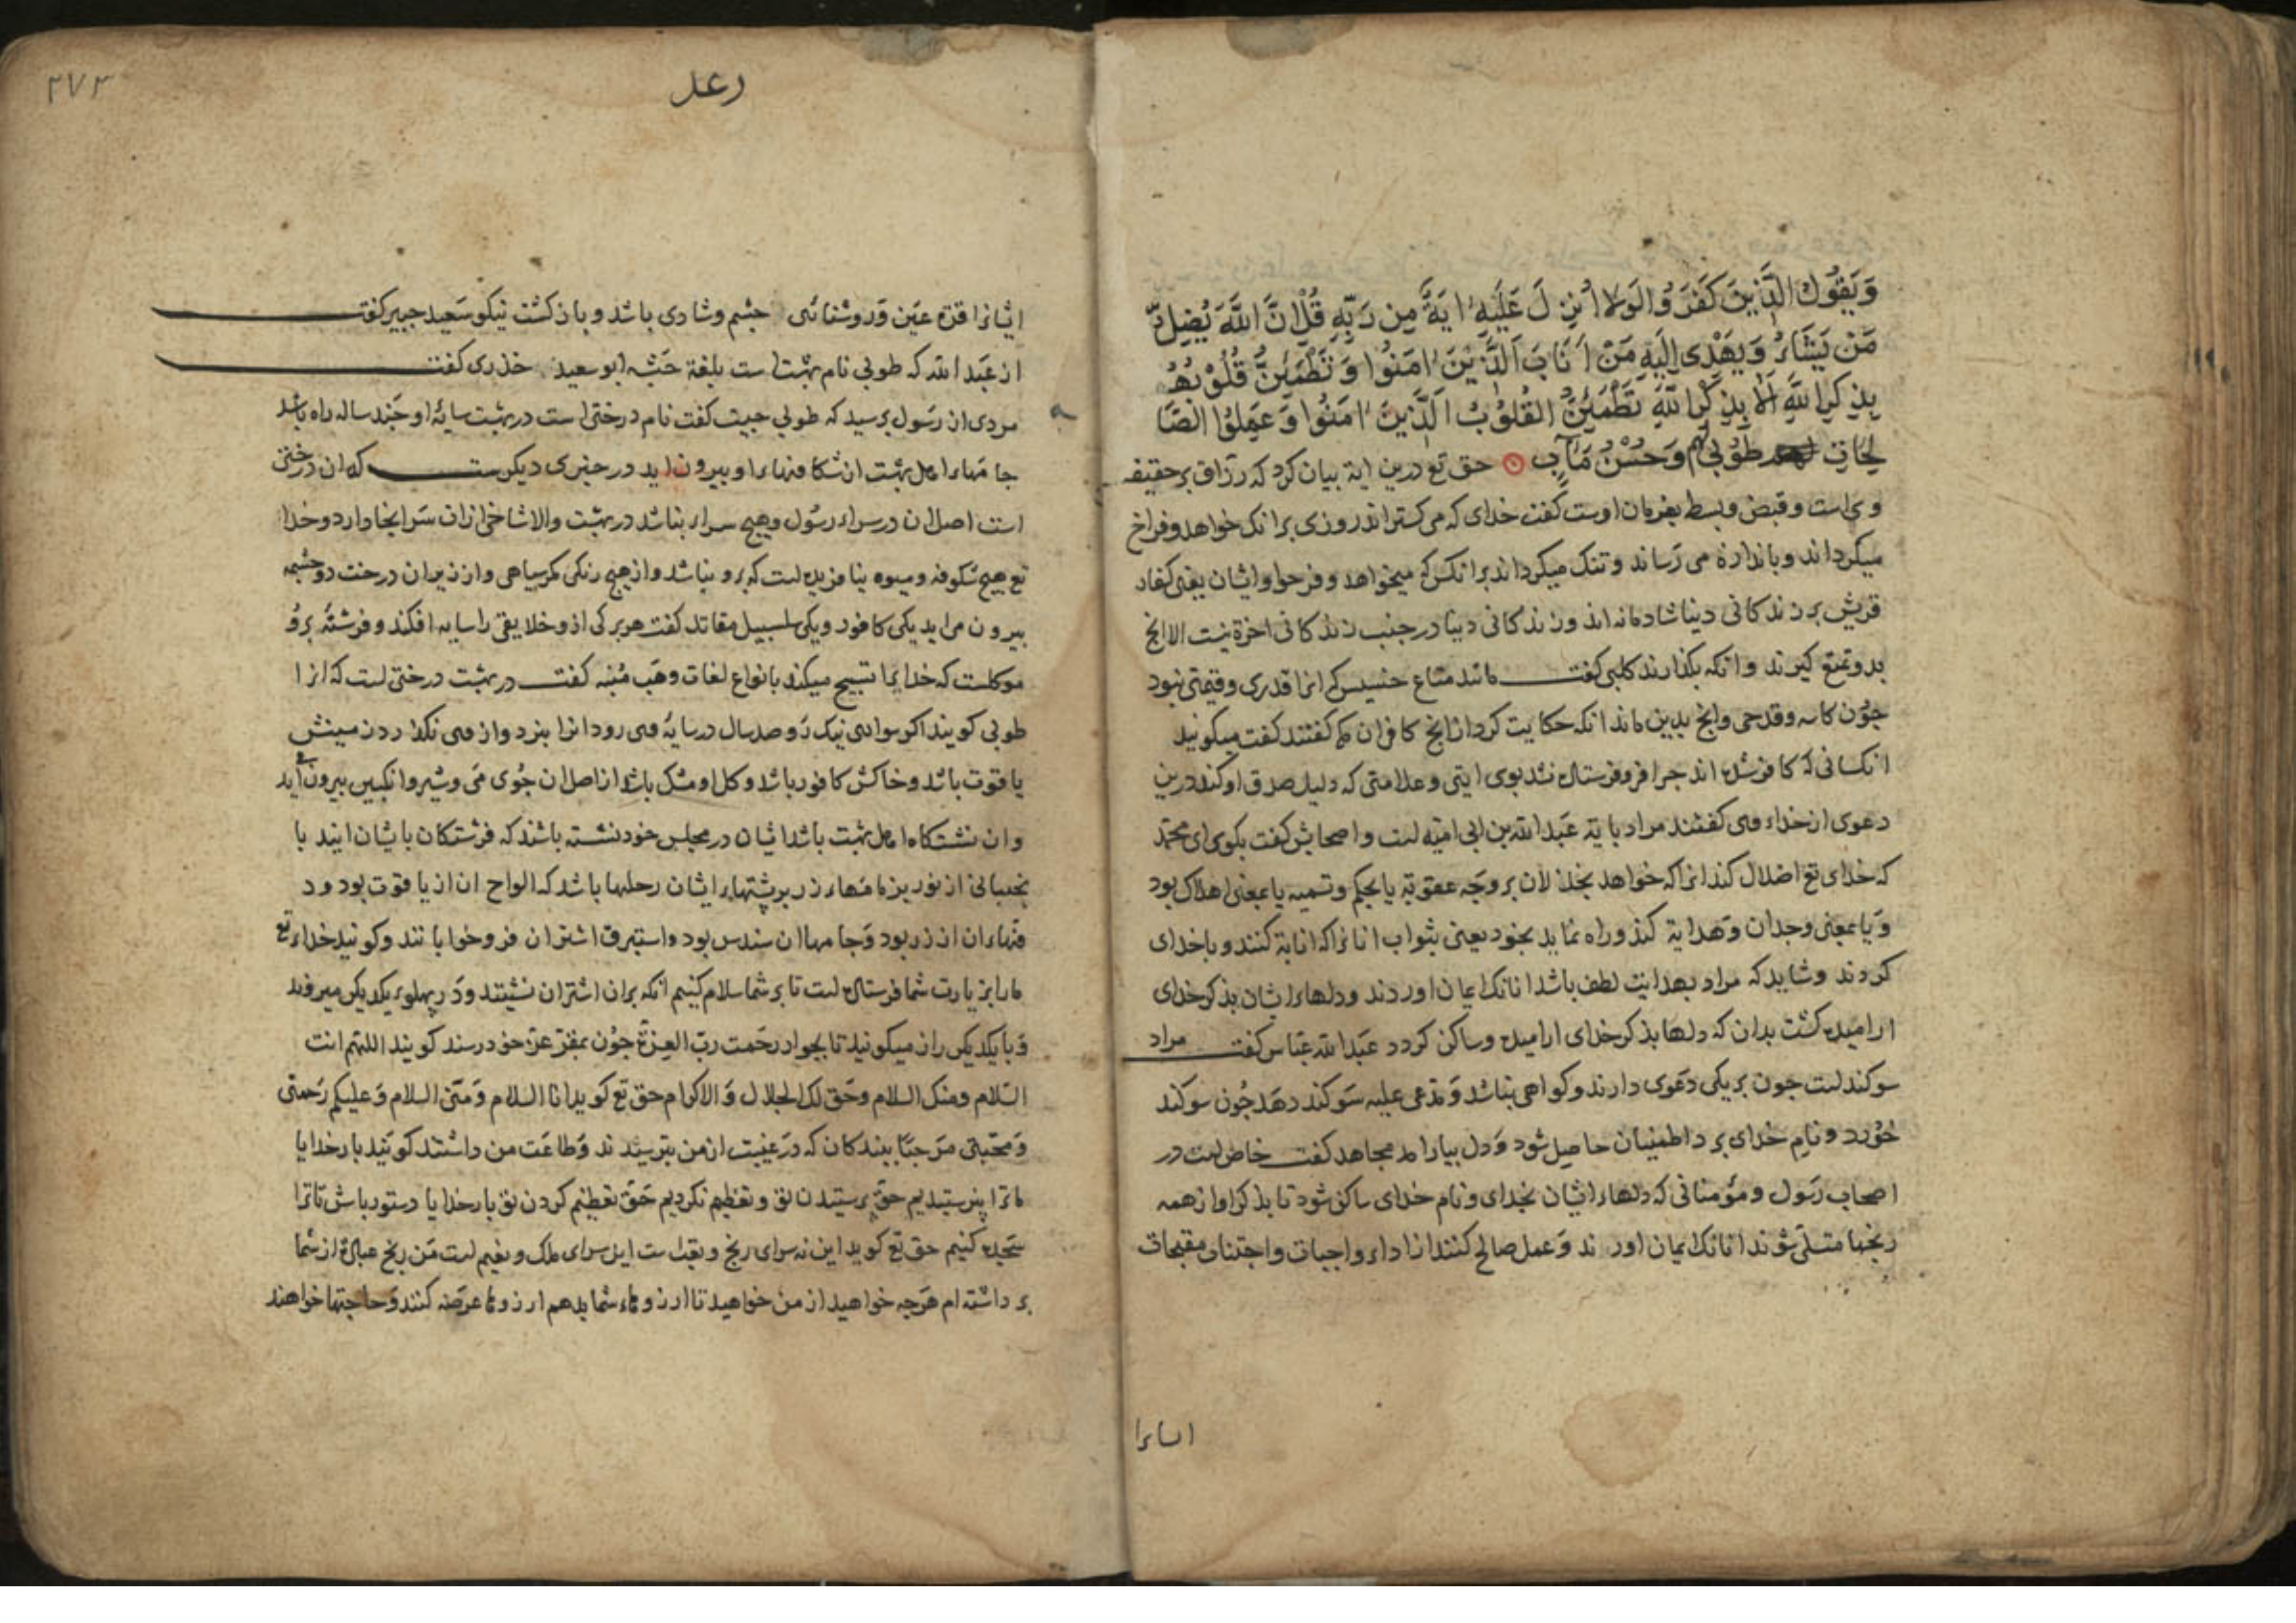 وَيَقُولُ الَّذِينَ كَفَرُوا لَوْلَا أُنْزِلَ عَلَيْهِ ايَةٌ مِن رَبِّهِ قُلْ اِنَّ اللَّهَ يُضِلُّ
مَن يَشَاءُ وَيَهْدِى اِلَيْهِ مَنْ اَنَابَ اَلَّذِيْنَ اٰمَنُوا وَتَطْمَئِنُّ قُلُوْبُهُمْ
بِذِكْرِ اللَّهِ اَلَا بِذِكْرِ اللّٰهِ تَطْمَئِنُّ الْقُلُوْبُ اَلَّذِينَ اٰمَنُوا وَعَمِلُوا الصَّا
لِحَاتِ طُوْبٰى لهم وَحُسْنُ مَآبٍ حق تع درین ایة بیان کرد که رزاق بر حقیقه
وی است و قبض و بسط بفرمان اوست گفت خدای که می کستراند روزی برانک خواهد و فراخ
میکرداند و باندازه می رساند و تنک میکرداند برانکس که میخواهد و فرحوا و ایشان یعنی کفار
قریش بزندکانی دنیا شادمانه اند و زندکانی دنیا در جنب زندکانی اخرة نیست الا انج
بدو تمتع کیرند و انکه بکذارند کلبی کفت مانند متاع خسیس که انرا قدری و قیمتی نبود
جون کاسه و قدحی و انج بدین ماند انکه حکایت کرد از انج کافران که کفتند کفت میکویند
انکسانی که کافر شده اند جرا فرو فرستاده نشد بوی ایتی و علامتی که دلیل صدق او کند درین
دعوی از خداء می کفتند مراد بایة عبد الله بن ابی امیه است و اصحابش کفت بکوی ای محمد
که خدای تع اضلال کند انرا که خواهد بخذلان بر وجه عقوبة یا بحکم و تسمیه یا بمعنی اهلاک بود
و یا بمعنی وجدان و هدایة کند و راه نماید بخود یعنی بثواب انانرا که انابة کنند و با خدای
کردند و شاید که مراد بهدایت لطف باشد انانک ایمان اوردند و دلهاء ایشان بذکر خدای
ارامیده کشت بدان که دلها بذکر خدای ارامیده و ساکن کردد عبد الله عباس کفت مراد
سوکند است جون بر یکی دعوی دارند و کواهی نباشد و مدعی علیه سوکند دهد جون سوکند
خورد و نام خدای برد اطمینان حاصل شود و دل بیارامد مجاهد کفت خاص است در
اصحاب رسول و مؤمنانی که دلهاء ایشان بخدای و نام خدای ساکن شود تا بذکر او از همه
رنجها متسلی شوند انانک ایمان اورند و عمل صالح کنند از اداء واجبات و اجتناب مقبحات
رعد
۲۷۳
ایشانرا قرة عین و روشنائی جشم و شادی باشد و باز کشت نیکو سعید جبیر کفت
از عبد الله که طوبی نام بهشت است بلغة حبشه ابو سعید خدری کفت
مردی از رسول برسید که طوبی جیست کفت نام درختی است در بهشت سایۀ او جند ساله راه باشد
جامهاء اهل بهشت از شکافهاء او بیرون اید در خبری دیکرست که ان درختی
است اصل ان در سراء رسول و هیج سراء نباشد در بهشت والا شاخی از ان سر انجا دارد و خدا
تع هیج شکوفه و میوه نیافریده است که برو نباشد و از هیج رنکی مکر سیاهی و از زیر ان درخت دو جشمه
بیرون می اید یکی کافور و یکی سلسبیل مقاتل کفت هر برکی ازو خلایقی را سایه افکند و فرشتۀ برو
موکلست که خدایرا تسبیح میکند بانواع لغات وهب منبه کفت در بهشت درختی است که انرا
طوبی کویند اکر سواری نیک رو صد سال در سایۀ می رود انرا بنزد و از می نکذرد زمینش
یاقوت باشد و خاکش کافور باشد و کل او مشک باشد از اصل ان جوی می و شیر و انکبین بیرون می اید
و ان نشستکاه اهل بهشت باشد ایشان در مجلس خود نشسته باشند که فرشتکان بایشان ایند با
نجیبانی از نور بزمامهاء زر بر پشتهاء ایشان رحلها باشد که الواح ان از یاقوت بود و د
فتهاء ان از زر بود و جامها ان سندس بود و استبرق اشتران فرو خوابانند و کویند خداء تع
ما را بزیارت شما فرستاده است تا بر شما سلام کنیم انکه بران اشتران نشینند و در پهلوء یکدیکر میروند
و با یکدیکر راز میکویند تا بجوار رحمت رب العزة جون بمقر عز خود رسند کویند اللهم انت
السلام و منک السلام و حق لک الجلال و الاکرام حق تع کوید انا السلام و منی السلام و علیکم رحمتی
و محبتی مرحبا ببندکان که در غیبت از من بترسیدند و طاعت من داشتند کویند بار خدایا
ما ترا نپرستیدیم حق پرستیدن تو و تعظیم نکردیم حق تعظیم کردن تو بار خدایا دستور باش تا ترا
سجده کنیم حق تع کوید این نه سرای رنج و تعب است این سرای ملک و نعیم است من رنج عبادة از شما
برداشته ام هرجه خواهید از من خواهید تا ارزوهاء شما بدهم ارزوها عرضه کنند و حاجتها خواهند